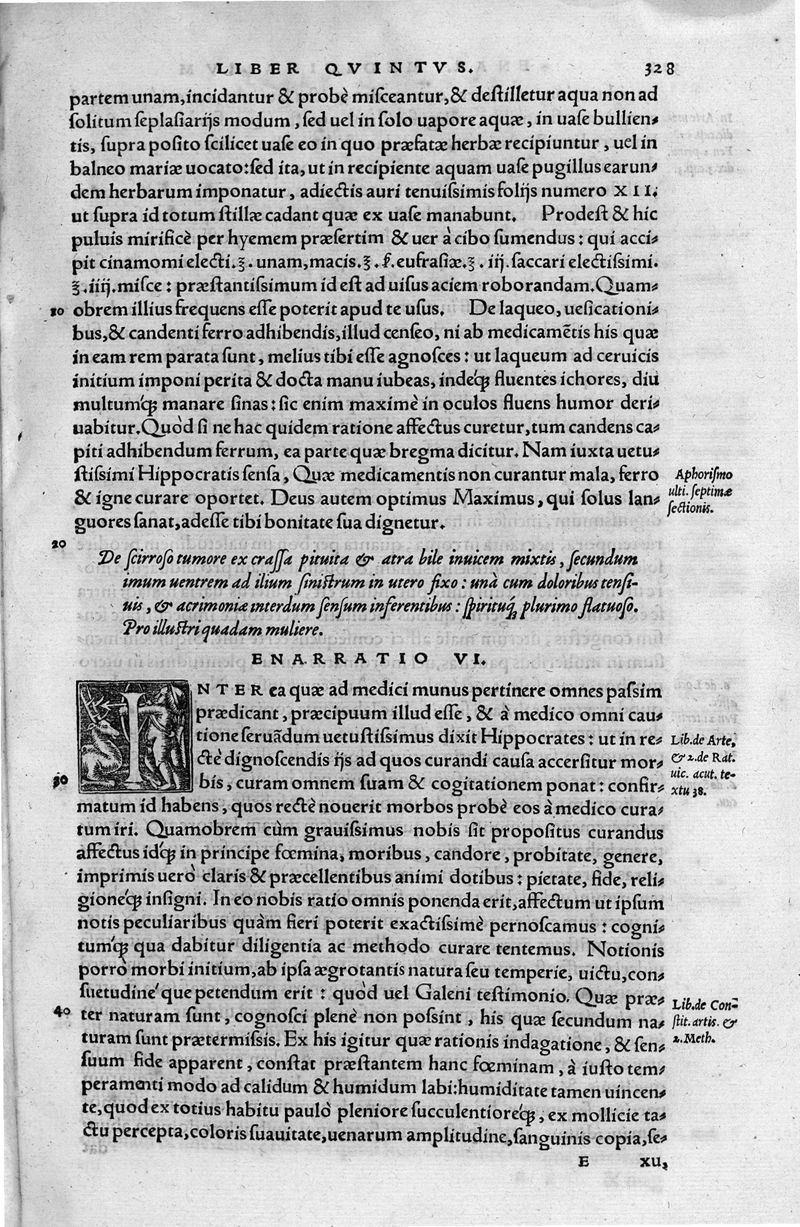 LIBER QVINTVS. 328
partem unam, incidantur & probè misceantur, & destilletur aqua non ad
solitum seplasiarijs modum, sed uel in solo uapore aquæ, in uase bullien-
tis, supra posito scilicet uase eo in quo præfatæ herbæ recipiuntur, uel in
balneo mariæ uocato: sed ita, ut in recipiente aquam uase pugillus earun-
dem herbarum imponatur, adiectis auri tenuissimis folijs numero XII.
ut supra id totum stillæ cadant quæ ex uase manabunt. Prodest & hic
puluis mirificè per hyemem præsertim & uer à cibo sumendus: qui acci-
pit cinamomi electi.ʒ. unam, macis.ʒ.ſ. eufrasiæ.ʒ.iij. saccari electissimi.
ʒ.iiij. misce: præstantissimum id est ad uisus aciem roborandam. Quam-
10 obrem illius frequens esse poterit apud te usus. De laqueo, uesicationi-
bus, & candenti ferro adhibendis, illud censeo, ni ab medicamētis his quæ
in eam rem parata sunt, melius tibi esse agnosces: ut laqueum ad ceruicis
initium imponi perita & docta manu iubeas, indeq́; fluentes ichores, diu
multumq́; manare sinas: sic enim maximè in oculos fluens humor deri-
uabitur. Quòd si ne hac quidem ratione affectus curetur, tum candens ca-
piti adhibendum ferrum, ea parte quæ bregma dicitur. Nam iuxta uetu-
stissimi Hippocratis sensa, Quæ medicamentis non curantur mala, ferro
& igne curare oportet. Deus autem optimus Maximus, qui solus lan-
guores sanat, adesse tibi bonitate sua dignetur.
Aphorismo
ulti. septimæ
sectionis.
20
De scirroso tumore ex crassa pituita & atra bile inuicem mixtis, secundum
imum uentrem ad ilium sinistrum in utero fixo: unà cum doloribus tensi-
uis, & acrimoniæ interdum sensum inferentibus: spirituq́; plurimo flatuoso.
Pro illustri quadam muliere.
ENARRATIO VI.
INTER ea quæ ad medici munus pertinere omnes passim
prædicant, præcipuum illud esse, & à medico omni cau-
tione seruādum uetustissimus dixit Hippocrates: ut in re-
ctè dignoscendis ijs ad quos curandi causa accersitur mor-
30 bis, curam omnem suam & cogitationem ponat: confir-
matum id habens, quos rectè nouerit morbos probè eos à medico cura-
tum iri. Quamobrem cùm grauissimus nobis sit propositus curandus
affectus idq́; in principe fœmina, moribus, candore, probitate, genere,
imprimis uerò claris & præcellentibus animi dotibus: pietate, fide, reli-
gioneq́; insigni. In eo nobis ratio omnis ponenda erit, affectum ut ipsum
notis peculiaribus quàm fieri poterit exactissimè pernoscamus: cogni-
tumq́; qua dabitur diligentia ac methodo curare tentemus. Notionis
porrò morbi initium, ab ipsa ægrotantis natura seu temperie, uictu, con-
suetudine´que petendum erit: quòd uel Galeni testimonio. Quæ præ-
40 ter naturam sunt, cognosci plenè non possint, his quæ secundum na-
turam sunt prætermissis. Ex his igitur quæ rationis indagatione, & sen-
suum fide apparent, constat præstantem hanc fœminam, à iusto tem-
peramenti modo ad calidum & humidum labi: humiditate tamen uincen-
te, quod ex totius habitu paulò pleniore succulentioreq́;, ex mollicie ta-
ctu percepta, coloris suauitate, uenarum amplitudine, sanguinis copia, se-
Lib. de Arte,
& 2. de Rat.
uic. acut. te-
xtu 38.
Lib. de Con-
stit. artis. &
2. Meth.
E xu,